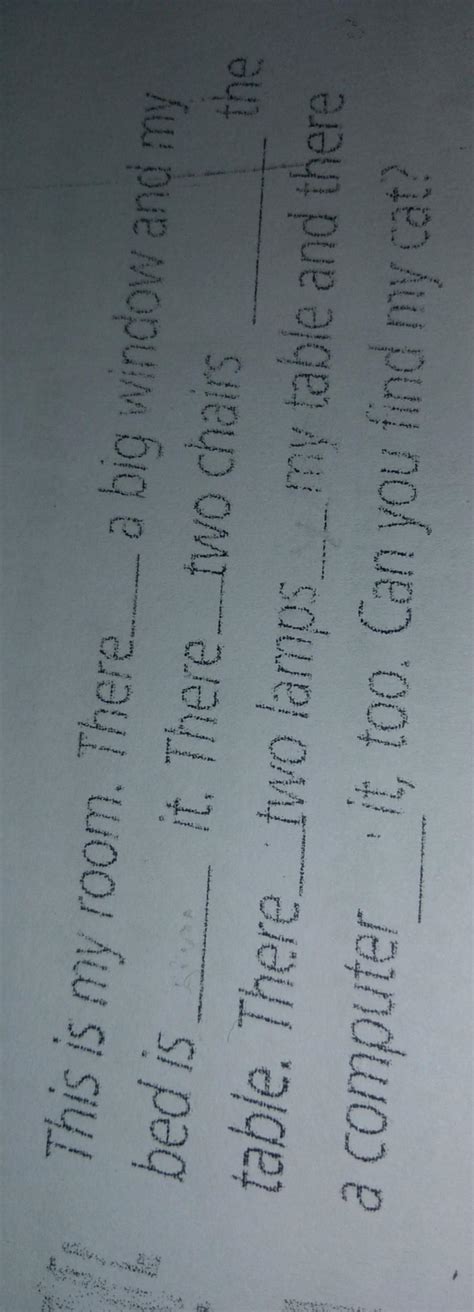 This is my room. There____ a big window and my
bed is ________ it. There___two chairs ________ the
table. There___two lamps ___ my table and there
a computer ____ it, too. Can you find my cat?